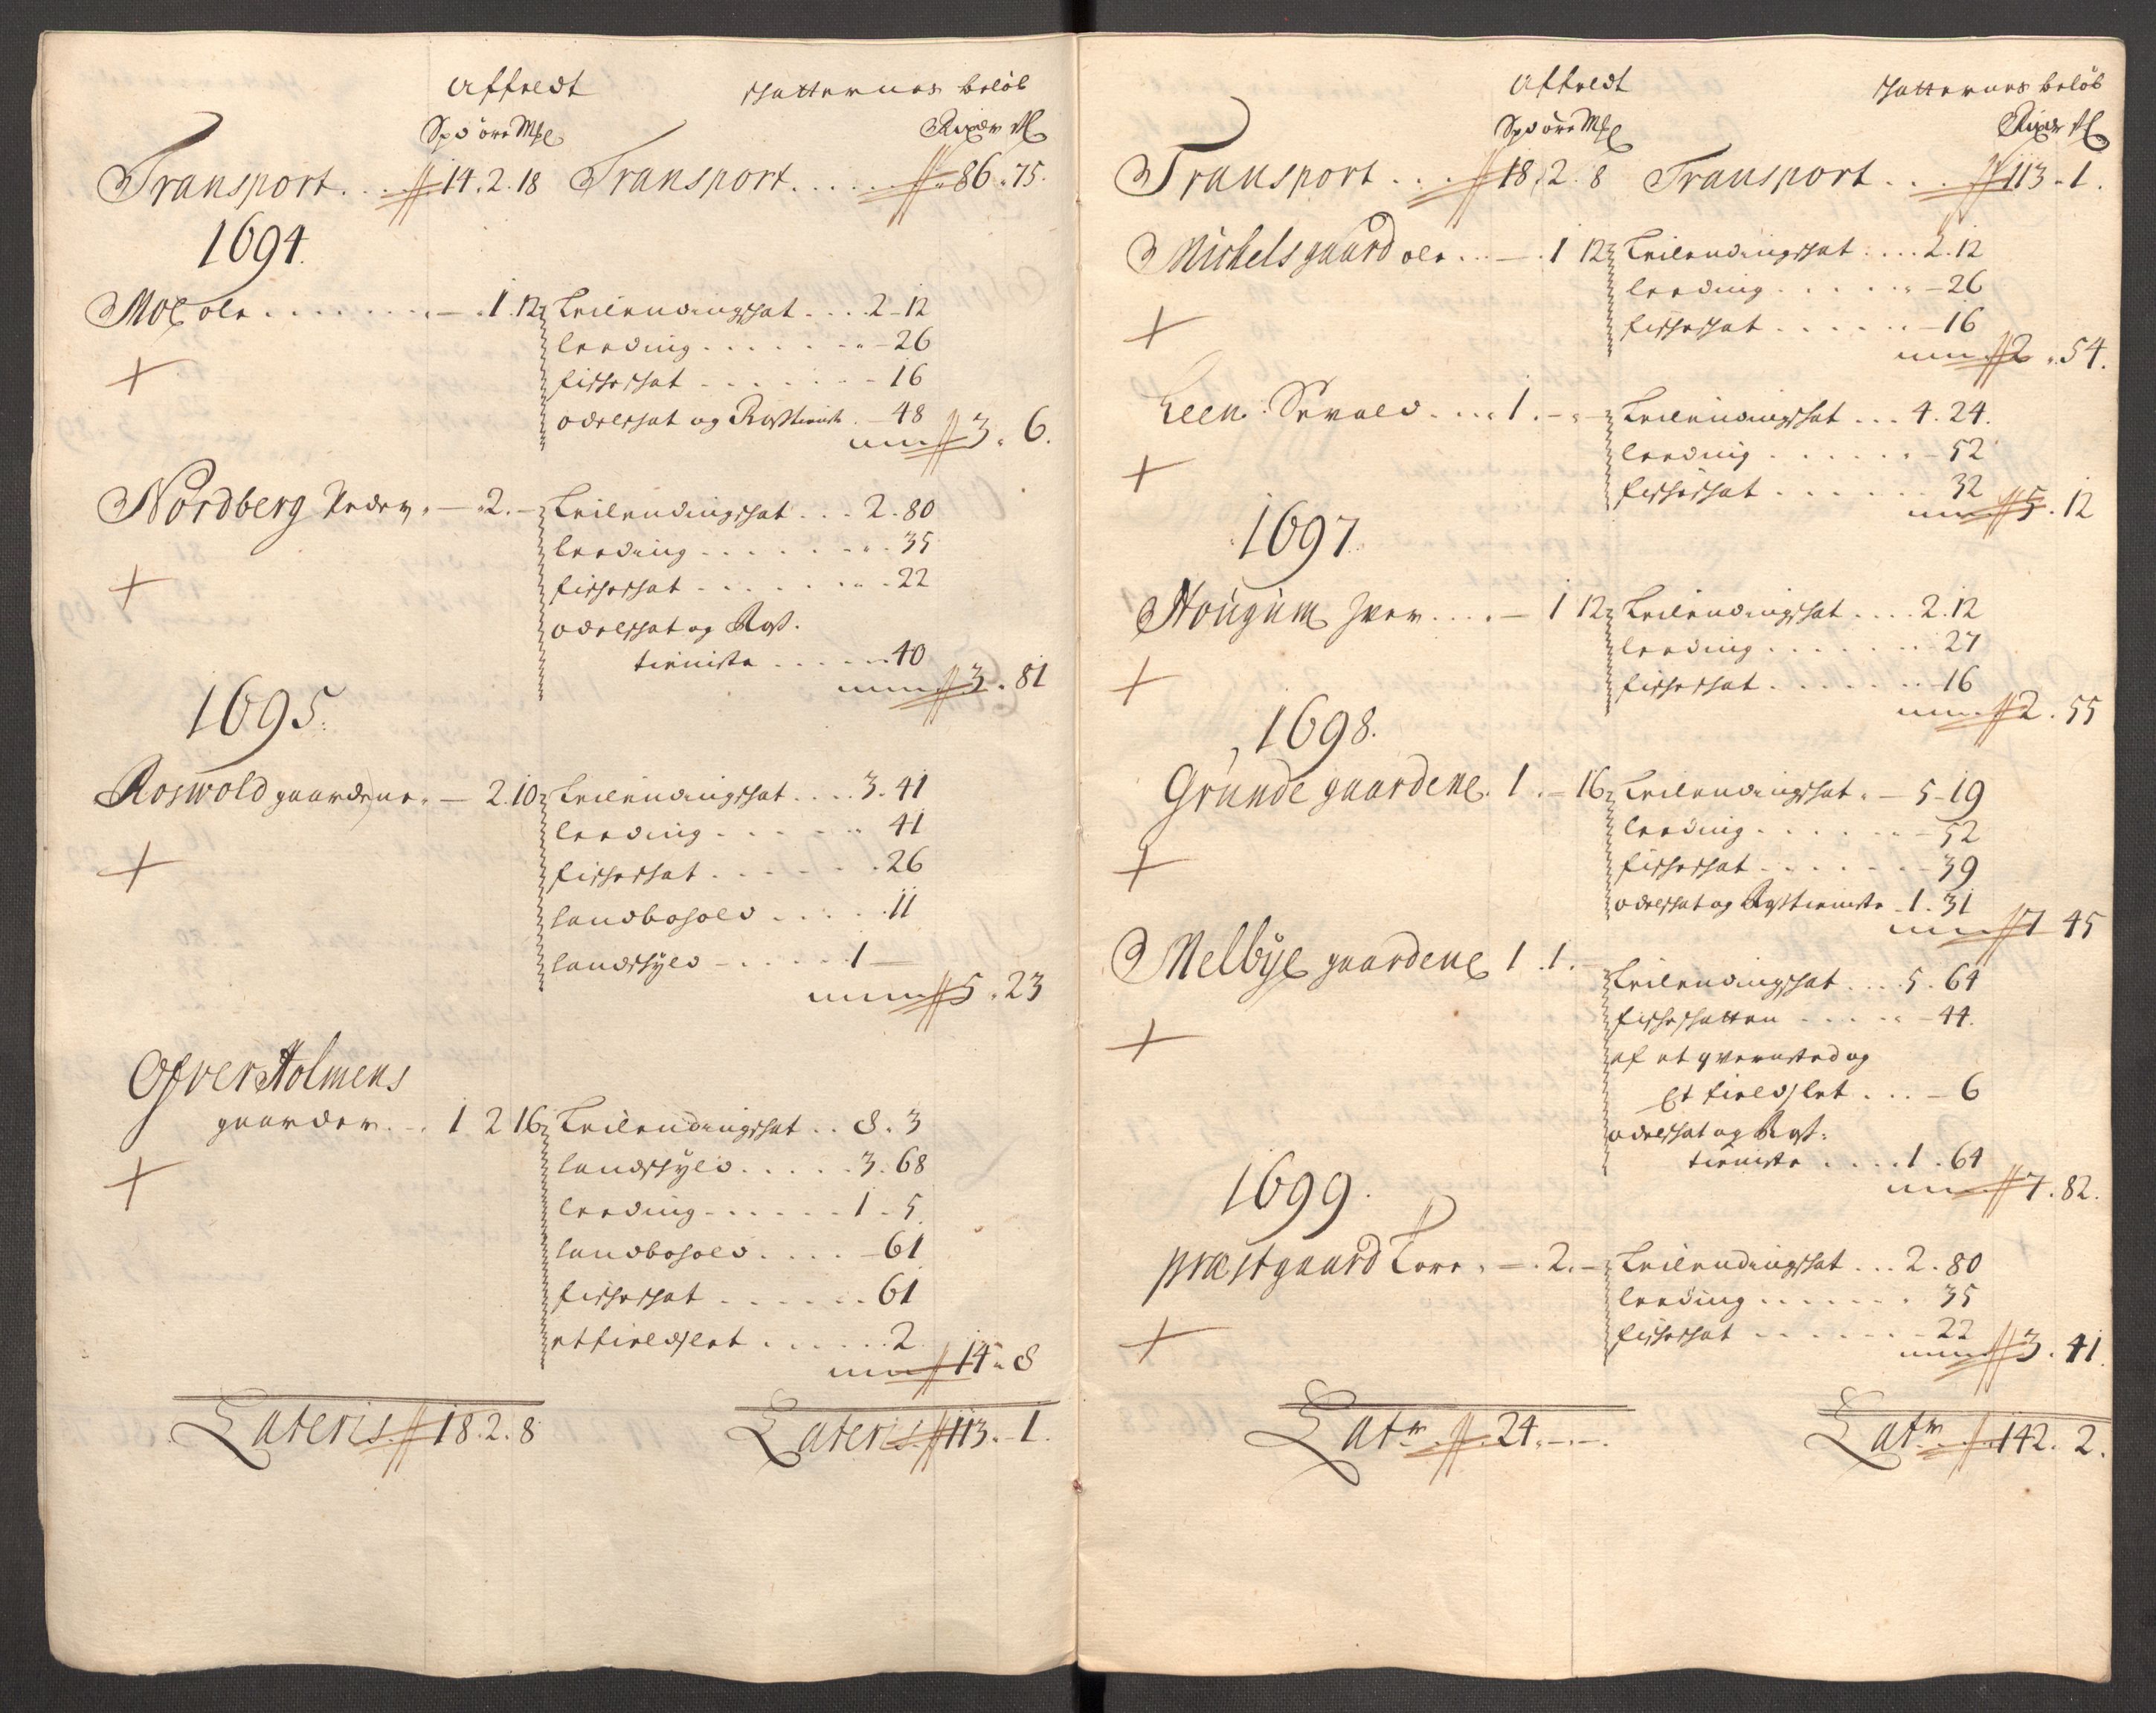 Affeldt skatternes beløb
Spd öre Mkl Rixdr
Transport . . . . 14. 2. 18 Transport . . . . . . 86. 75.
1694.
Moe ole . . . . . . . — . 1. 12 Leilendingsskat . . . . 2 - 12
leeding . . . . . . . - 26
fiskeskat . . . . . . - 16
odelskat og Rosstieniste . - 48
3. 6.
Nordberg Peder . — . 2. — Leilendingsskat . . . 2. 80
leeding . . . . . . . 35
fiskeskat . . . . . . . 22
odelskat og Ross-
tieniste . . . . . . 40
3. 81
1695.
Roswold gaardene . — 2. 10 Leilendingsskat . . . . 3. 41
leeding . . . . . . 41
fiskeskat . . . . . . . 26
landbohold . . . . . 11
landskyld - . . . . . 1 —
5. 23
Ofver Holmens
gaarder . . 1 2 16 Leilendingsskat . . 8. 3
landskyld . . . . . 3. 68
leeding - . . . . . 1 - 5
landbohold . . . . - 61
fiskeskat . . . . . . 61
et fieldslet . . . . . . 2
14. 8
Lateris 18. 2. 8 Lateris 113. - 1.
Affeldt skatternes beløb
Spd öre Mkl Rixdr
Transport . . . 18. 2. 8 Transport . . . 113 - 1.
Michelsgaard ole . . . — . 1 12 Leilendingsskat . . . . 2. 12
leeding . . . . . . - 26
fiskeskat . . . . . . - 16
2. 54.
Leen Sevald . . . . 1. - . - Leilendingsskat . . . 4. 24.
leeding . . . . . . - 52
fiskeskat . . . . . . 32
5. 12
1697.
Hougum Iver . . . . — 1 12 Leilendingsskat . . . . 2. 12
leeding . . . . . . . 27
fiskeskat . . . . . . . - 16
2. 55
1698.
Grunde gaardene . 1. — 16 Leilendingsskat . — 5 - 19
leeding . . . . . . - 52
fiskeskat . . . . . . . - 39
odelskat og Rosstieniste - 1. 31
7 45
Melbye gaardene 1. 1. — Leilendingsskat . . . . 5. 64
fiskeskatten . . . . . - 44.
af et qvernsted og
Et fieldslet . . . — 6
odelskat og Ross-
tieniste . . . . . 1. 64
7. 82.
1699.
præstgaard Tore . — . 2. — Leilendingsskat . . . 2. 80
leeding . . . . . . . 35
fiskeskat . . . . . . . - 22
3. 41.
Latr. 24. - . - . Latr. 142. 2.